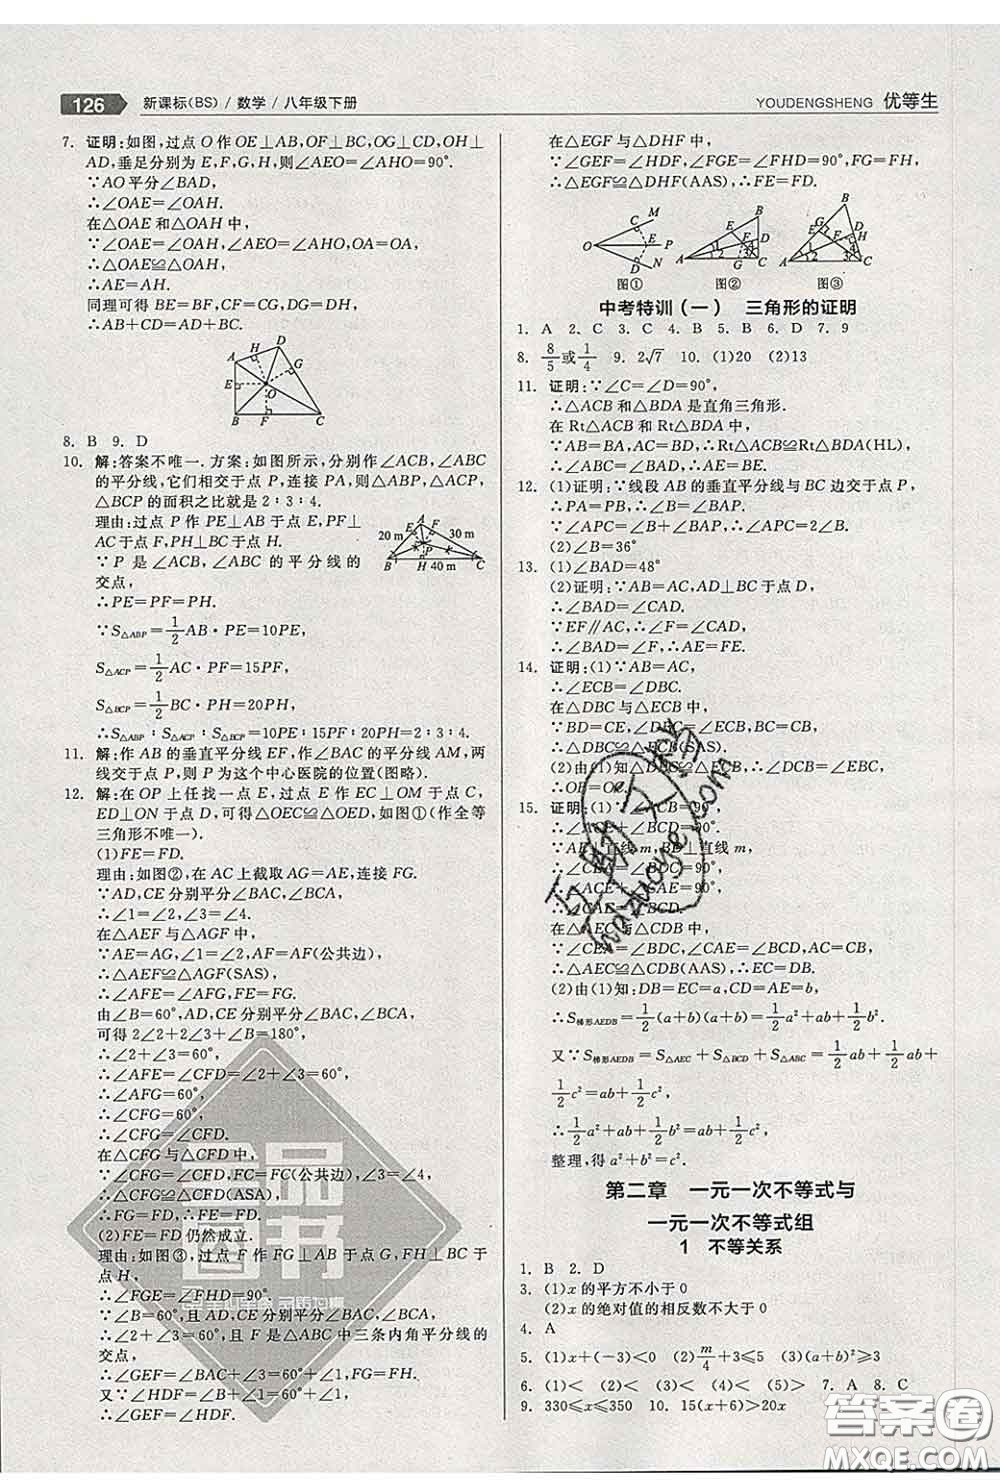 126 新课标(BS) / 数学 / 八年级下册
YOUDENGSHENG 优等生
7. 证明:如图,过点 O 作 OE⊥AB,OF⊥BC,OG⊥CD,OH⊥
AD,垂足分别为 E,F,G,H,则∠AEO=∠AHO=90°.
∵AO平分∠BAD,
∴∠OAE=∠OAH.
在△OAE 和△OAH 中,
∵∠OAE=∠OAH,∠AEO=∠AHO,OA=OA,
∴△OAE≌△OAH.
∴AE=AH.
同理可得 BE=BF,CF=CG,DG=DH,
∴AB+CD=BC+AD.
A B C D E F G H O
8. B 9. D
10. 解:答案不唯一.方案:如图所示,分别作∠ACB,∠ABC
的平分线,它们相交于点 P,连接 PA,则△ABP,△ACP,
△BCP 的面积之比就是 2∶3∶4.
理由:过点 P 作 PE⊥AB 于点 E,PF⊥
AC 于点 F,PH⊥BC 于点 H.
∵ P 是∠ACB,∠ABC 的平分线的
交点,
∴PE=PF=PH.
A E F 20 m 30 m P B H 40 m C
∵S△ABP=1/2AB·PE=10PE,
S△ACP=1/2AC·PF=15PF,
S△BCP=1/2BC·PH=20PH,
∴S△ABP∶S△ACP∶S△BCP=10PE∶15PF∶20PH=2∶3∶4.
11. 解:作 AB 的垂直平分线 EF,作∠BAC 的平分线 AM,两
线交于点 P,则 P 为这个中心医院的位置(图略).
12. 解:在 OP 上任找一点 E,过点 E 作 EC⊥OM 于点 C,
ED⊥ON 于点 D,可得△OEC≌△OED,如图①(作全等
三角形不唯一).
(1)FE=FD.
理由:如图②,在 AC 上截取 AG=AE,连接 FG.
∵AD,CE 分别平分∠BAC,∠BCA,
∴∠1=∠2,∠3=∠4.
在△AEF 与△AGF 中,
∵AE=AG,∠1=∠2,AF=AF(公共边),
∴△AEF≌△AGF(SAS),
∴∠AFE=∠AFG,FE=FG.
由∠B=60°,AD,CE 分别平分∠BAC,∠BCA,
可得 2∠2+2∠3+∠B=180°,
∴∠2+∠3=60°,
∴∠AFE=∠CFD=∠2+∠3=60°,
∴∠AFG=60°,
∴∠CFG=60°,
∴∠CFG=∠CFD.
在△CFG 与△CFD 中,
∵∠CFG=∠CFD,FC=FC(公共边),∠3=∠4,
∴△CFG≌△CFD(ASA),
∴FG=FD,∴FE=FD.
(2)FE=FD仍然成立.
理由:如图③,过点 F 作 FG⊥AB 于点 G,FH⊥BC 于
点 H,
∴∠FGE=∠FHD=90°.
∵∠B=60°,且 AD,CE 分别平分∠BAC,∠BCA,
∴∠2+∠3=60°,且 F 是△ABC 中三条内角平分线的
交点,
∴∠GEF=∠BAC+∠3=60°+∠1,FG=FH.
又∵∠HDF=∠B+∠1=60°+∠1,
∴∠GEF=∠HDF.
在△EGF 与△DHF 中,
∵∠GEF=∠HDF,∠FGE=∠FHD=90°,FG=FH,
∴△EGF≌△DHF(AAS),∴FE=FD.
图① 图② 图③
中考特训(一) 三角形的证明
1. A 2. C 3. C 4. B 5. B 6. D 7. 9
8. 8/5或1/4 9. 2√7 10. (1)20 (2)13
11. 证明:∵∠C=∠D=90°,
∴△ACB 和△BDA 是直角三角形.
在 Rt△ACB 和 Rt△BDA 中,
∵AB=BA,AC=BD,∴Rt△ACB≌Rt△BDA(HL),
∴∠ABC=∠BAD,∴AE=BE.
12. (1)证明:∵线段 AB 的垂直平分线与 BC 边交于点 P,
∴PA=PB,∴∠B=∠BAP.
∵∠APC=∠B+∠BAP,∴∠APC=2∠B.
(2)∠B=36°
13. (1)∠BAD=48°
(2)证明:∵AB=AC,AD⊥BC 于点 D,
∴∠BAD=∠CAD.
∵EF∥AC,∴∠F=∠CAD,
∴∠BAD=∠F,∴AE=FE.
14. 证明:(1)∵AB=AC,
∴∠ECB=∠DBC.
在△DBC 与△ECB 中,
∵BD=CE,∠DBC=∠ECB,BC=CB,
∴△DBC≌△ECB(SAS).
(2)由(1)知△DBC≌△ECB,∴∠DCB=∠EBC,
∴OB=OC.
15. 证明:(1)∵∠ACB=90°,
∴∠ACE+∠BCD=90°.
∵AE⊥直线m,BD⊥直线 m,
∴∠CEA=∠BDC=90°,
∴∠ACE+∠CAE=90°,
∴∠CAE=∠BCD.
在△AEC 与△CDB 中,
∵∠CEA=∠BDC,∠CAE=∠BCD,AC=CB,
∴△AEC≌△CDB(AAS),∴CE=BD.
(2)由(1)知:BD=CE=a,CD=AE=b,
∴S梯形AEDB=1/2(a+b)(a+b)=1/2a²+ab+1/2b².
又∵S梯形AEDB=S△AEC+S△BCD+S△ABC=1/2ab+1/2ab+
1/2c²=ab+1/2c²,
∴1/2a²+ab+1/2b²=ab+1/2c²,
整理,得 a²+b²=c².
第二章 一元一次不等式与
一元一次不等式组
1 不等关系
1. B 2. D
3. (1)x 的平方不小于 0
(2)x 的绝对值的相反数不大于 0
4. A
5. (1)x+(-3)<0 (2)m/4+3≤5 (3)(a+b)²≥3
6. (1)< (2)< (3)< (4)> (5)> 7. A 8. C
9. 330≤x≤350 10. 15(x+6)>20x
答案圈
MXQE.COM